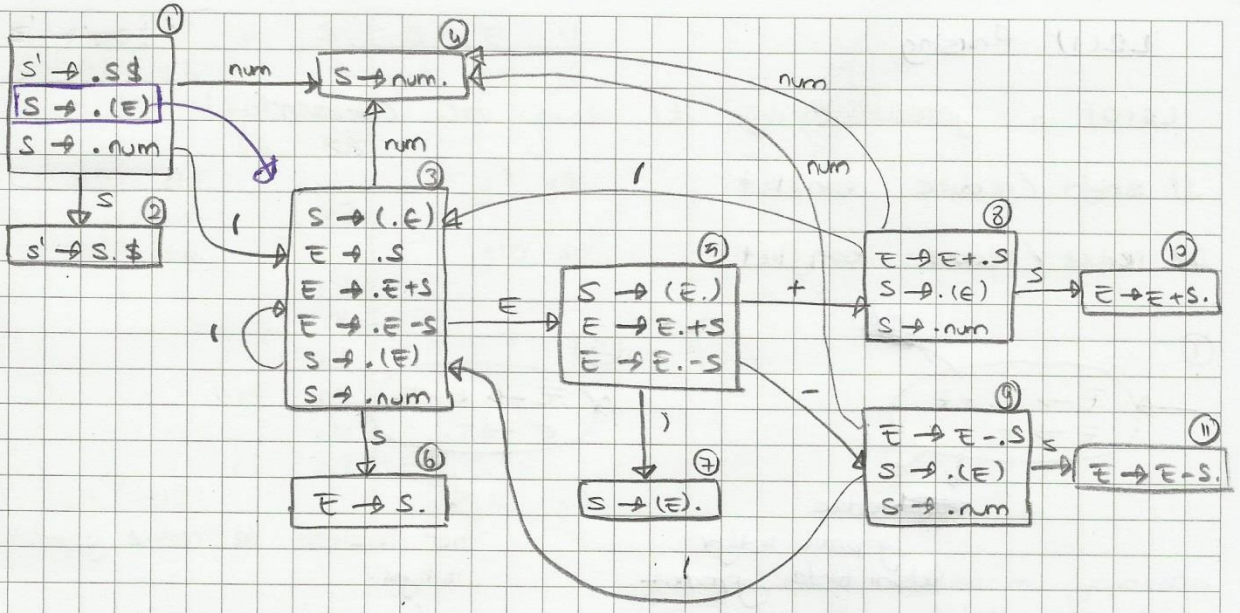 ①
S' → .S$
S → .(E)
S → .num
num
④
S → num.
num
num
num
S
(
②
S' → S.$
③
S → (.E)
E → .S
E → .E+S
E → .E-S
S → .(E)
S → .num
(
(
E
S
⑥
E → S.
⑤
S → (E.)
E → E.+S
E → E.-S
+
-
)
⑦
S → (E).
⑧
E → E+.S
S → .(E)
S → .num
S
⑩
E → E+S.
⑨
E → E-.S
S → .(E)
S → .num
S
⑪
E → E-S.
(